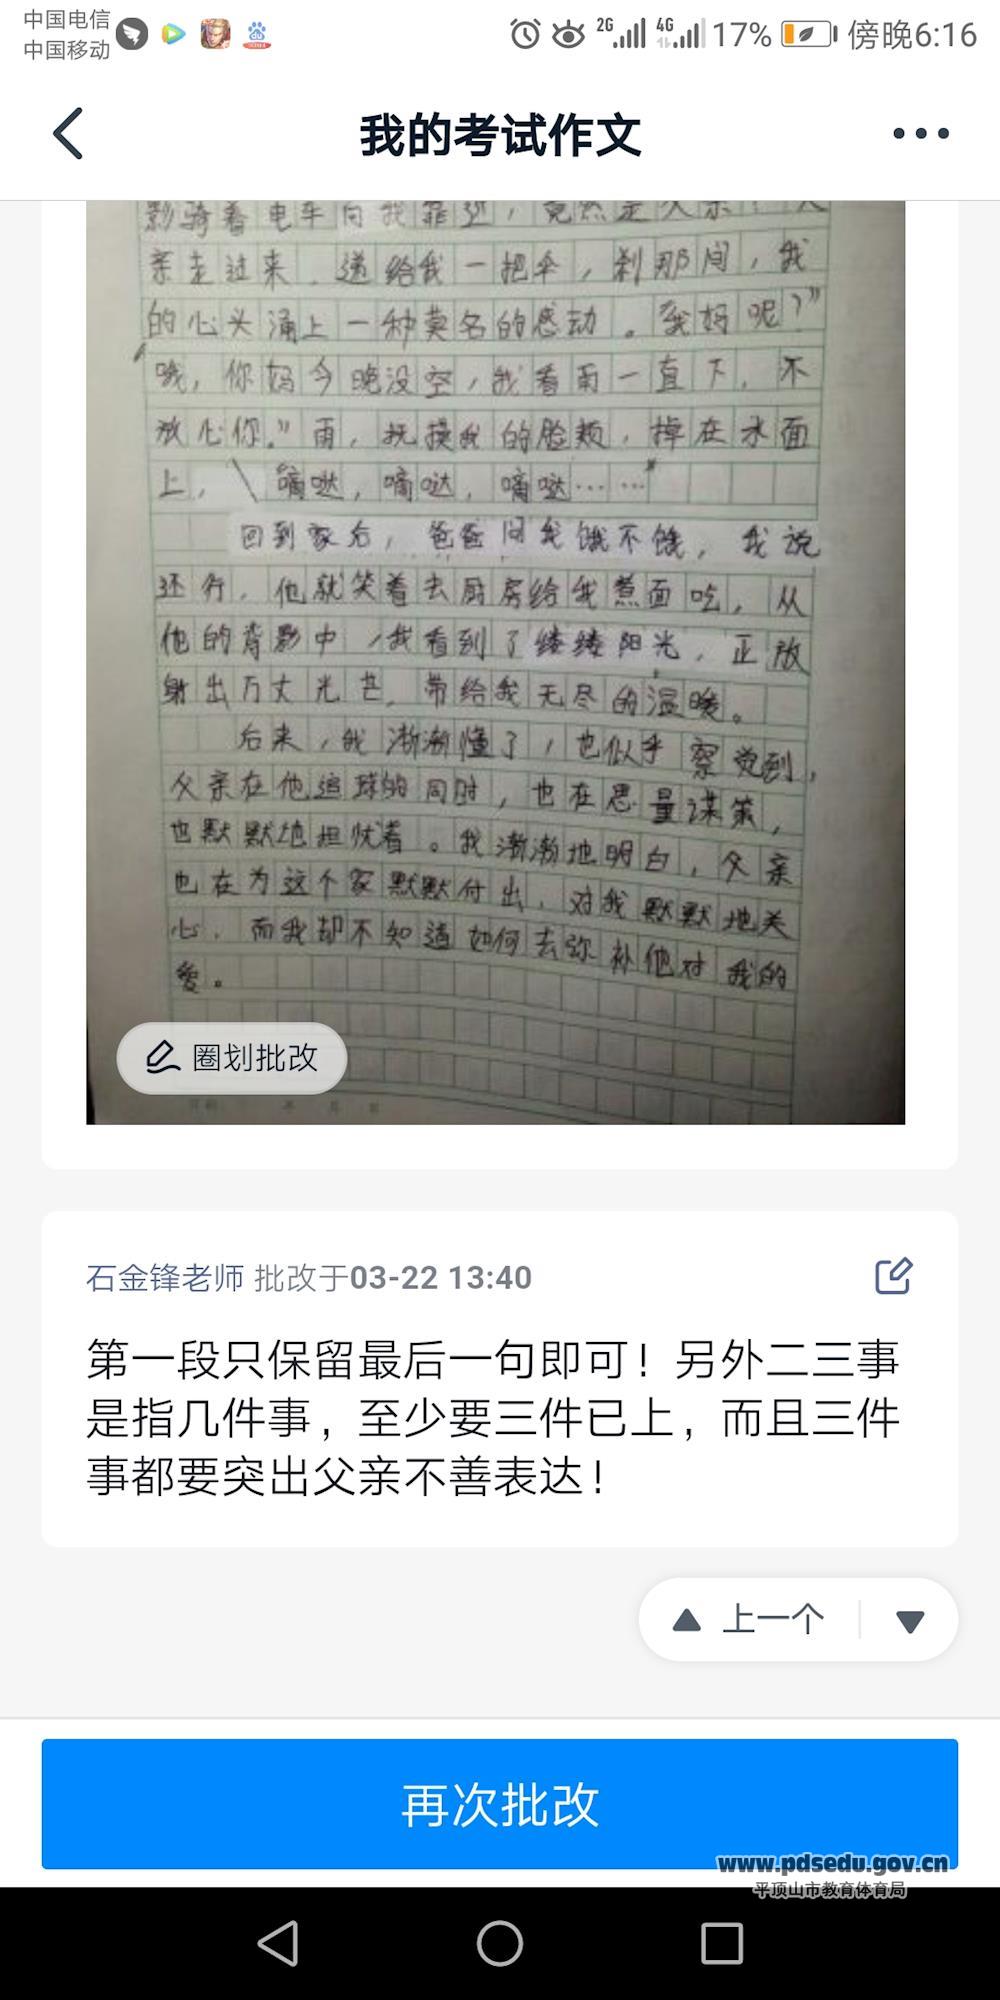 中国电信
中国移动
2G
4G
17%
傍晚6:16
我的考试作文
影骑着电车向我靠近，竟然是父亲！父
亲走过来，递给我一把伞，刹那间，我
的心头涌上一种莫名的感动。“我妈呢？”
“哦，你妈今晚没空，我看雨一直下，不
放心你。”雨，抚摸我的脸颊，掉在水面
上，“嘀哒，嘀哒，嘀哒……”
回到家后，爸爸问我饿不饿，我说
还行，他就笑着去厨房给我煮面吃，从
他的背影中，我看到了缕缕阳光，正放
射出万丈光芒，带给我无尽的温暖。
后来，我渐渐懂了，也似乎察觉到，
父亲在他追球的同时，也在思量谋策，
也默默地担忧着。我渐渐地明白，父亲
也在为这个家默默付出，对我默默地关
心，而我却不知道如何去弥补他对我的
爱。
圈划批改
年 月 日
石金锋老师 批改于03-22 13:40
第一段只保留最后一句即可！另外二三事
是指几件事，至少要三件已上，而且三件
事都要突出父亲不善表达！
上一个
再次批改
www.pdsedu.gov.cn
平顶山市教育体育局